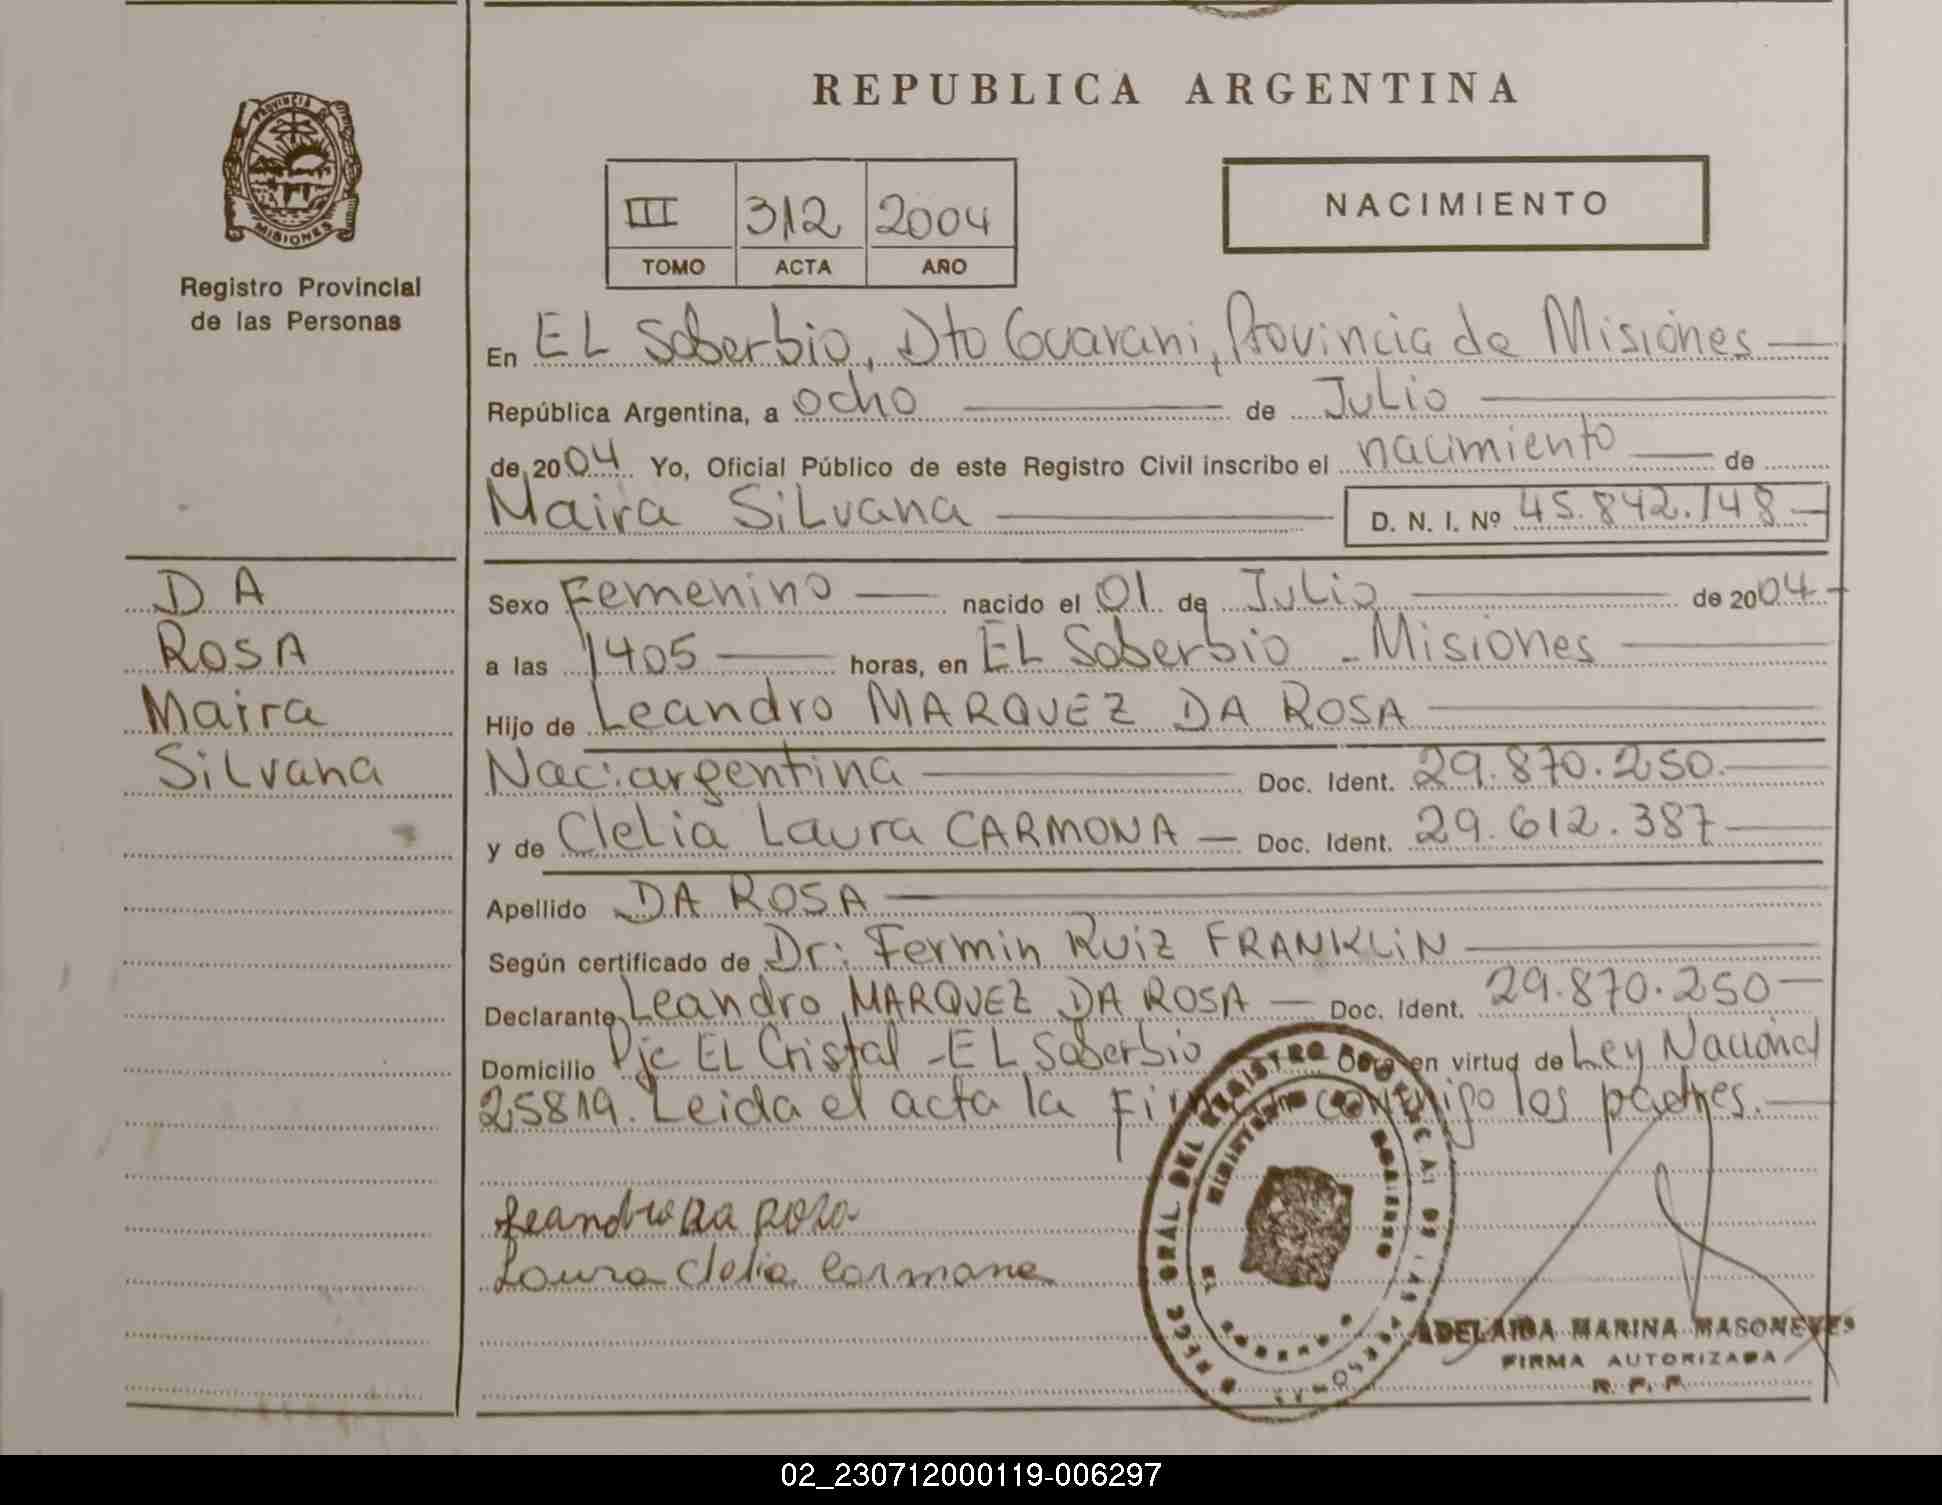 REPUBLICA ARGENTINA
PROVINCIA DE
MISIONES
Registro Provincial
de las Personas
III 312 2004
TOMO ACTA AÑO
NACIMIENTO
En EL Soberbio, Dto Guarani, Provincia de Misiones
República Argentina, a ocho de Julio
de 2004 Yo, Oficial Público de este Registro Civil inscribo el nacimiento de
Maira SiLvana D. N. I. Nº 45.842.148
DA
ROSA
Maira
SiLvana
Sexo Femenino nacido el 01 de Julio de 2004
a las 1405 horas, en EL Soberbio - Misiones
Hijo de Leandro MARQUEZ DA ROSA
Nac: argentina Doc. Ident. 29.870.250.
y de CleLia Laura CARMONA Doc. Ident. 29.612.387
Apellido DA ROSA
Según certificado de Dr: Fermin Ruiz FRANKLiN
Declarante Leandro MARQUEZ DA ROSA Doc. Ident. 29.870.250
Domicilio Pje EL Cristal - EL Soberbio Obra en virtud de Ley Nacional
25819. Leida el acta la conmigo los padres.
Leandro da rosa
Laura Clelia Carmona
MINISTERIO DE GOBIERNO
ADELAIDA MARINA MASONEVES
FIRMA AUTORIZADA
R. P. P.
02_230712000119-006297